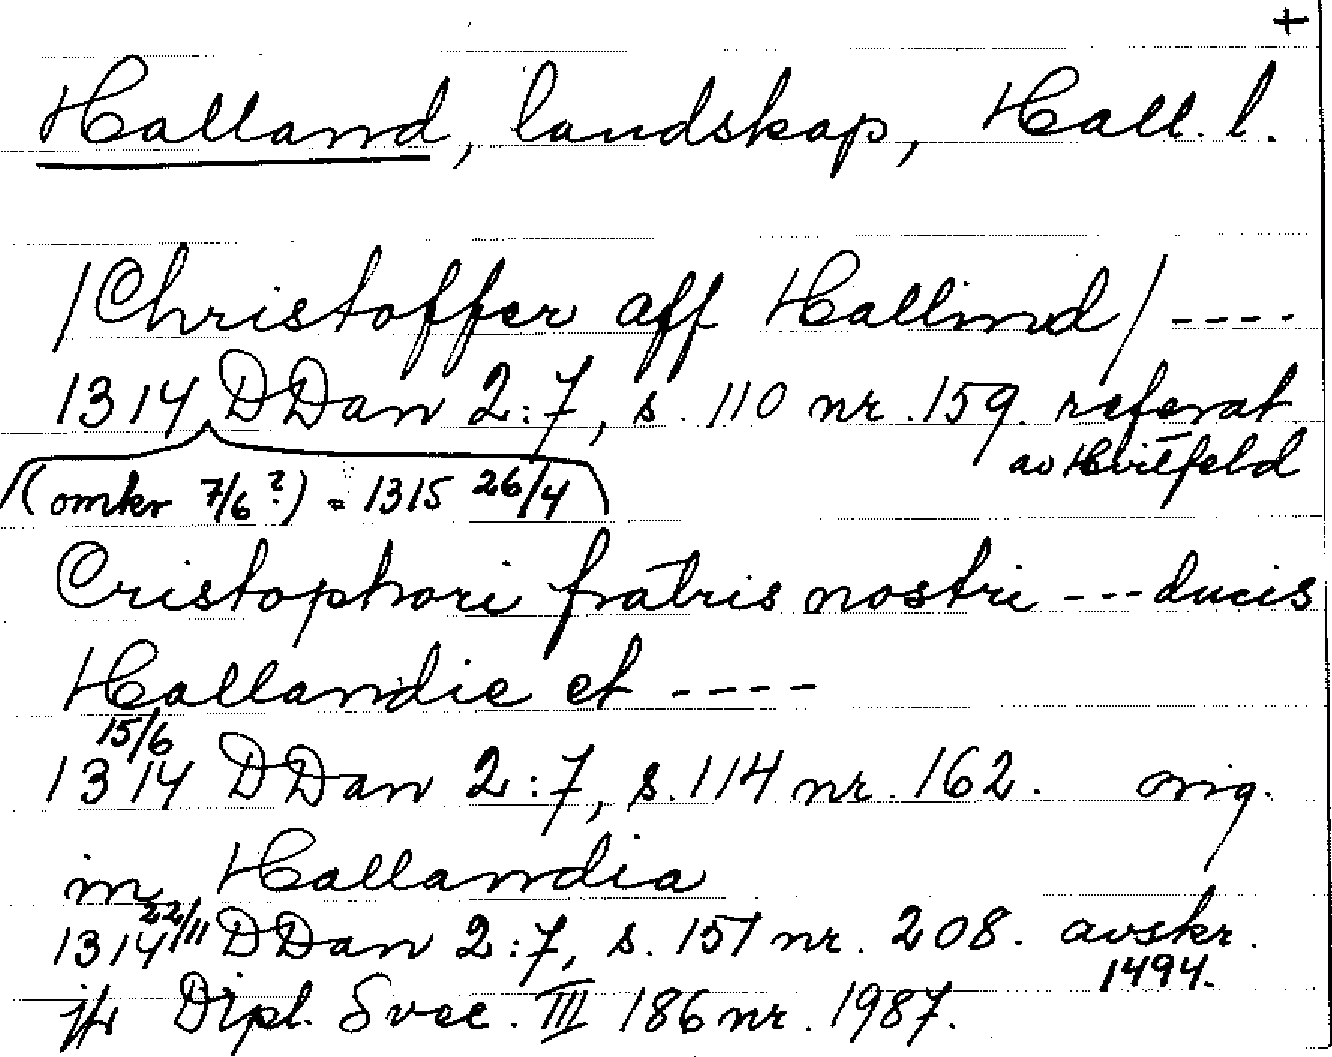 +
Halland, landskap, Hall. l.
/Christoffer aff Hallind/ ----
1314 DDan 2:7, s. 110 nr. 159. referat
av Hvitfeld
(omkr 7/6 ?) - 1315 26/4
Cristophori fratris nostri --- ducis
Hallandie et ----
15/6
1314 DDan 2:7, s. 114 nr. 162. orig.
in Hallandia
22/11
1314 DDan 2:7, s. 151 nr. 208. avskr.
1494.
jfr Dipl. Svec. III 186 nr. 1987.